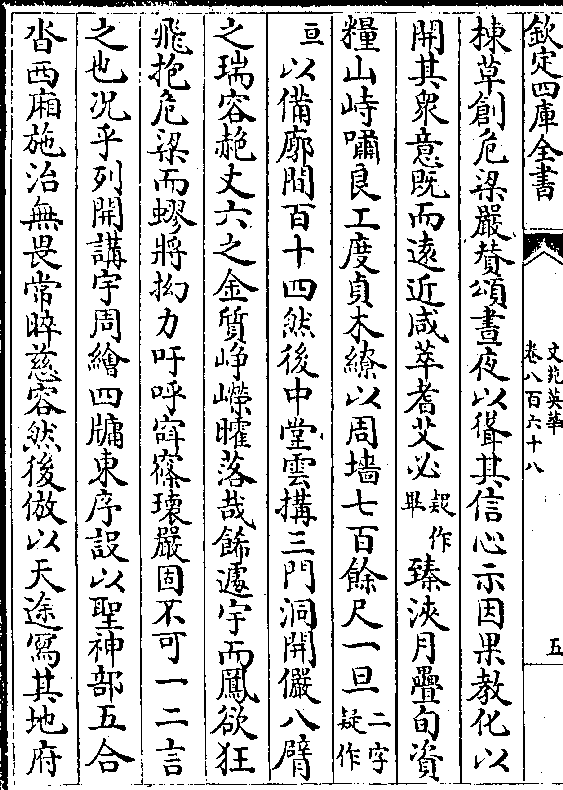 欽定四庫全書
文苑英華
卷八百六十八
五
棟草創危梁嚴贊頌晝夜以聳其信心示因果教化以
開其衆意既而遠近咸萃耆艾必疑作畢臻浹月疊旬資
糧山峙嘯良工度貞木繚以周墻七百餘尺一旦二字疑作
亘以備廓間百十四然後中堂雲搆三門洞開儼八臂
之瑞容赩丈六之金質崢嶸曜落哉餙遽宇而鳳欲狂
飛抱危梁而蟉將抝力吁呼窲嵺壊嚴固不可一二言
之也况乎列開講宇周繪四牗東序設以聖神部五合
呰西廂施治無畏常晬慈容然後倣以天途寫其地府